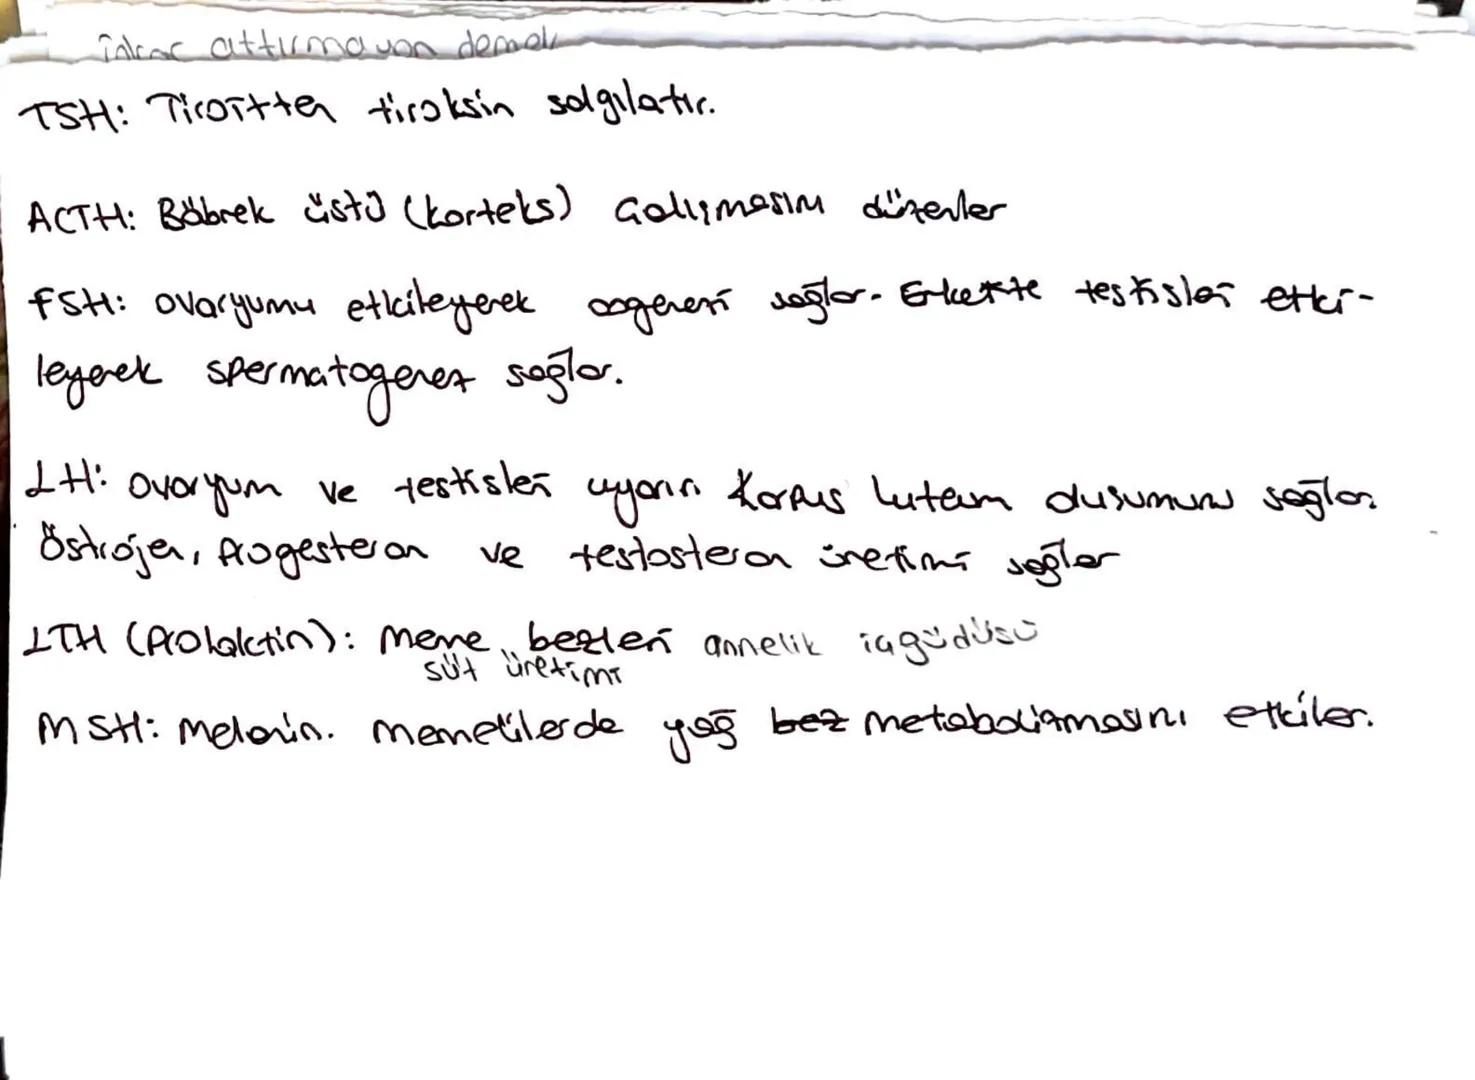 attırmayan demek
TSH: Tiroitten tiroksin salgılatır.
ACTH: Böbrek üstü (korteks) çalışmasını düzenler
FSH: Ovaryumu etkileyerek oogenezi sağlar. Erkekte testisleri etki-
leyerek spermatogenez sağlar.
LH: Ovaryum ve testisleri uyarır. Korpus luteum oluşumunu sağlar.
Östrojen, Progesteron ve testosteron üretimi sağlar
LTH (Prolaktin): Meme bezleri annelik içgüdüsü
süt üretimi
MSH: Melanin. Memelilerde yağ bez metabolizmasını etkiler.